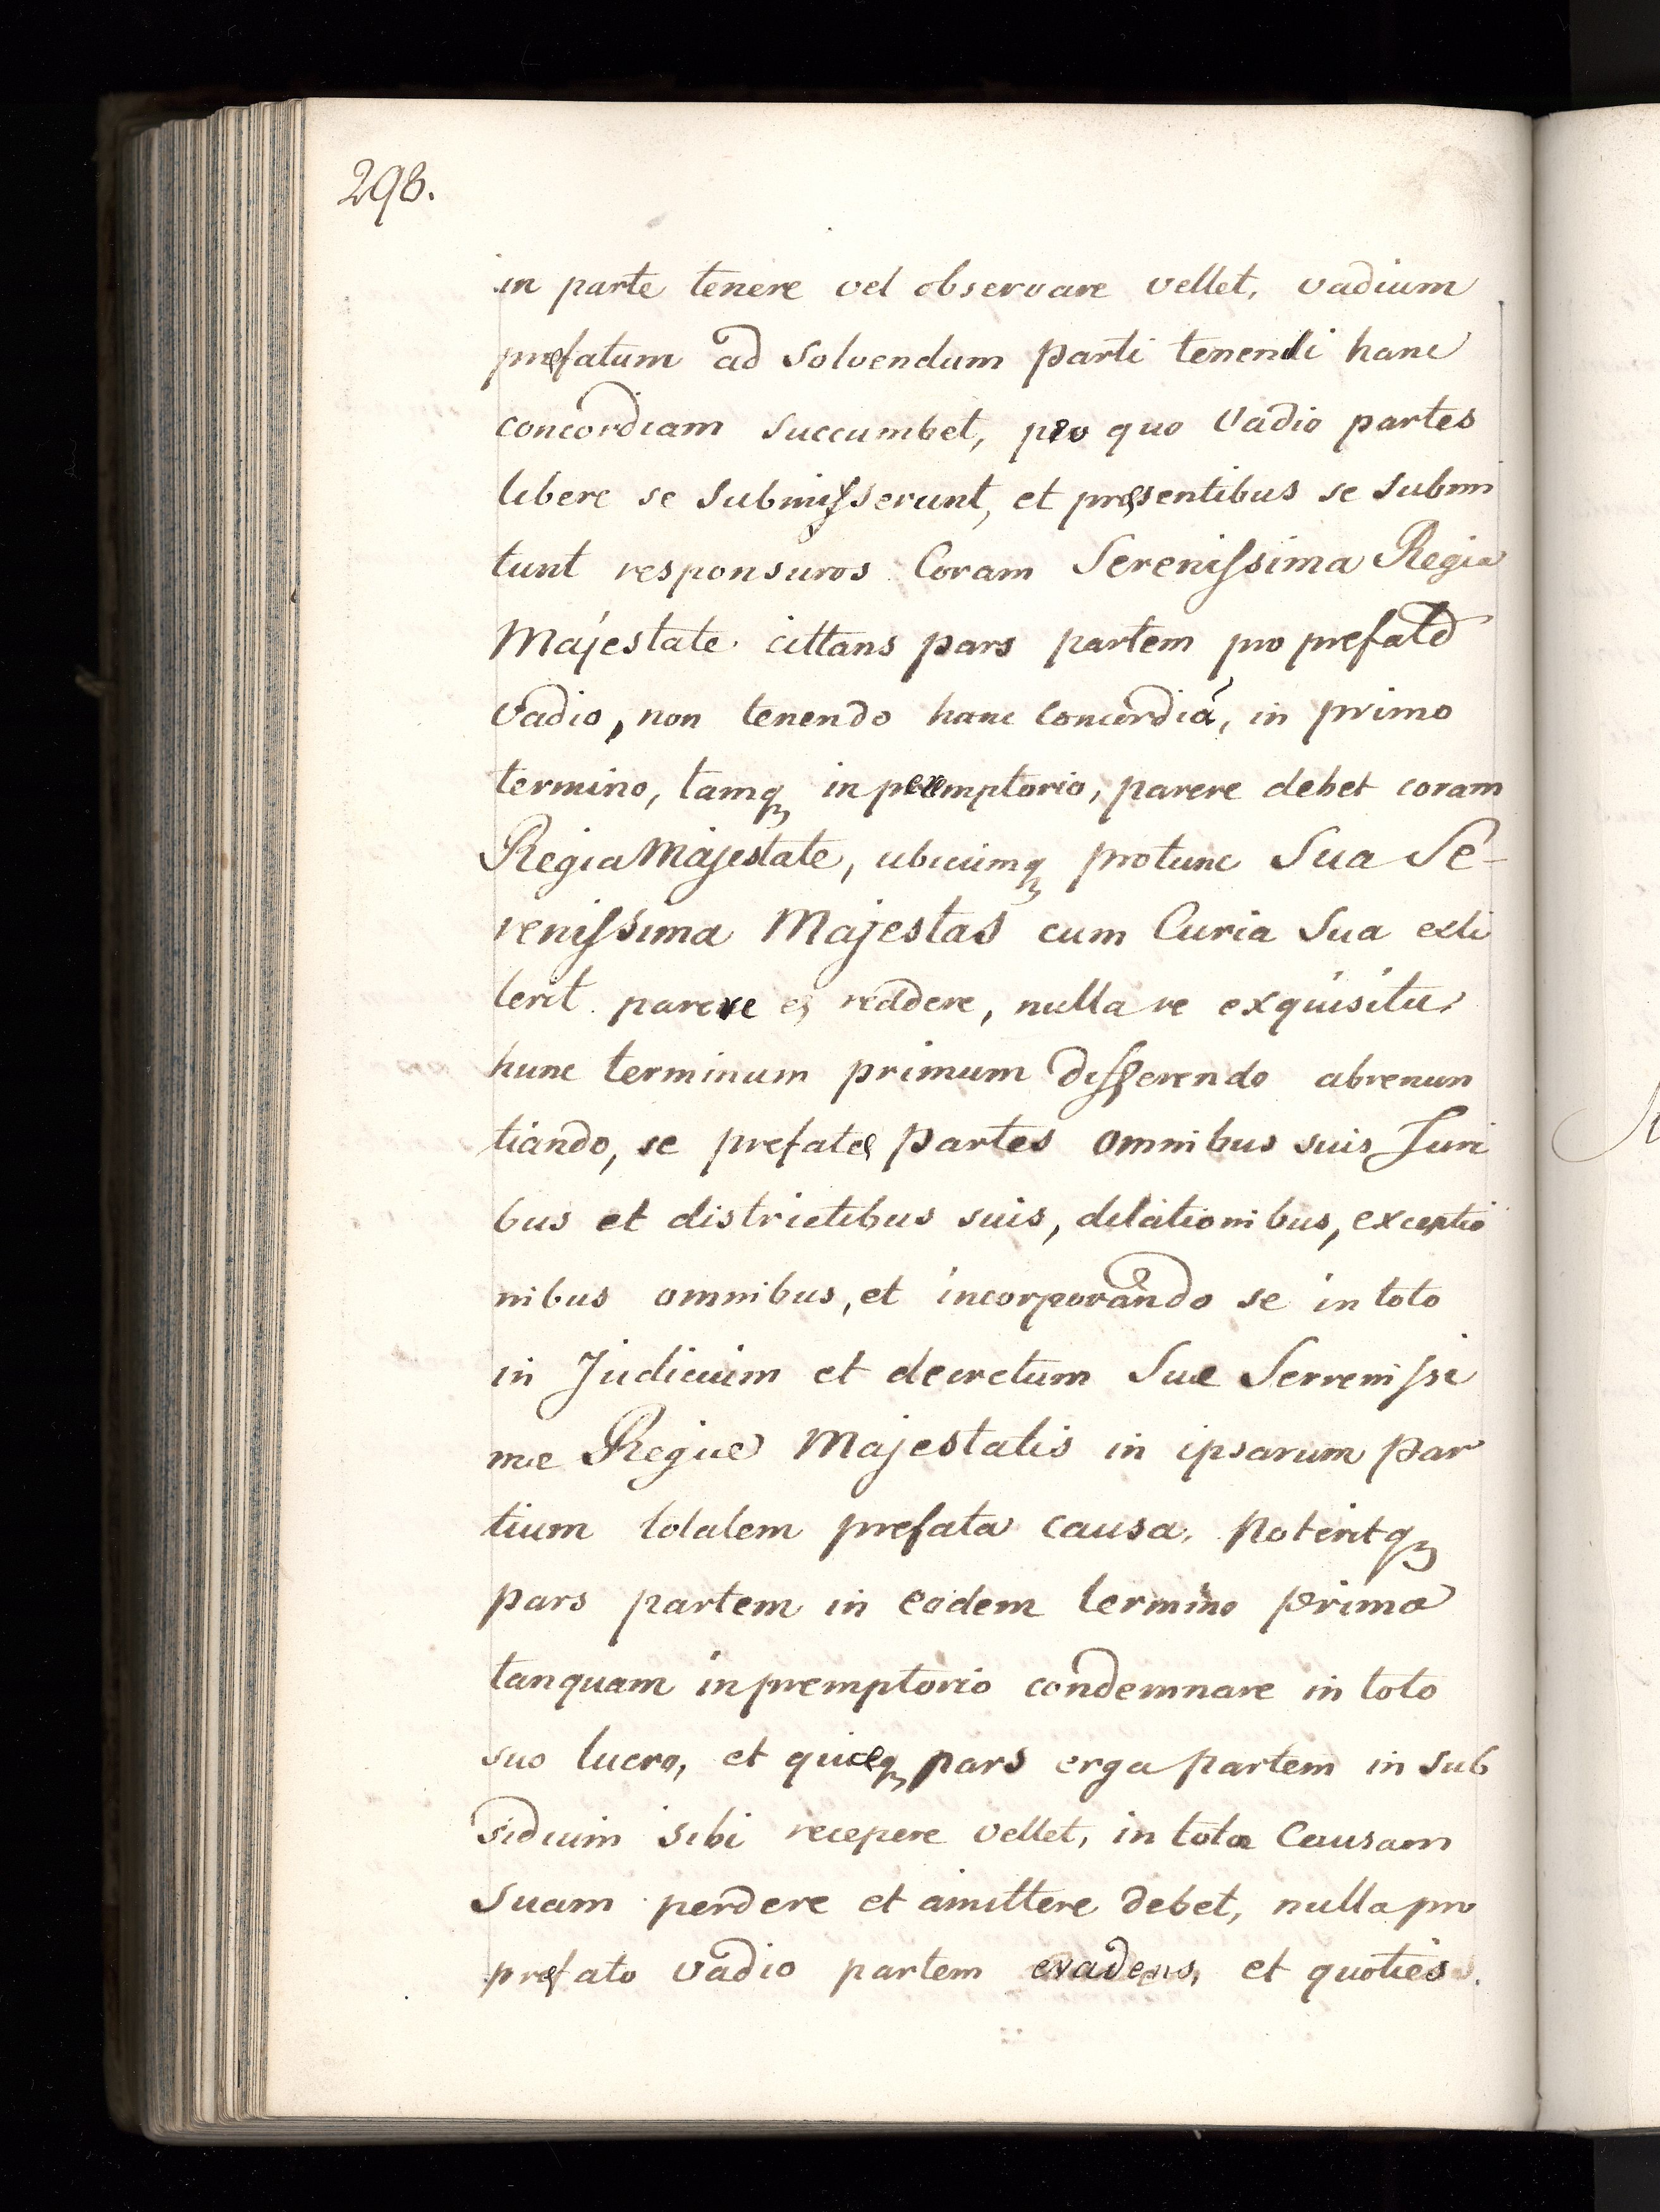 298.
in parte tenere vel observare vellet, vadium
præfatum ad solvendum parti tenendi hanc
concordiam succumbet, pro quo vadio partes
libere se submisserunt, et præsentibus se submi
tunt responsuros Coram Serenissima Regia
Majestate cittans pars partem pro prefato
vadio, non tenendo hanc concordiã, in primo
termino, tamqꝫ in peremptorio, parere debet coram
Regia Majestate, ubicumqꝫ protunc Sua Se-
renissima Majestas cum Curia Sua exti
terit parere et reddere, nulla re exquisita
hunc terminum primum differendo abrenun
tiando, se prefatæ partes omnibus suis Juri
bus et districtibus suis, dilationibus, exceptio
nibus omnibus, et incorporando se in toto
in Judicium et decretum Suæ Serrenissi
mæ Regiæ Majestatis in ipsarum par
tium totalem prefata causa, poteritqꝫ
pars partem in eodem termino primo
tanquam in premptorio condemnare in toto
suo lucro, et quæqꝫ pars erga partem in sub
sidium sibi recepere vellet, in tota Causam
suam perdere et amittere debet, nulla pro
præfato vadio partem evadens, et quoties